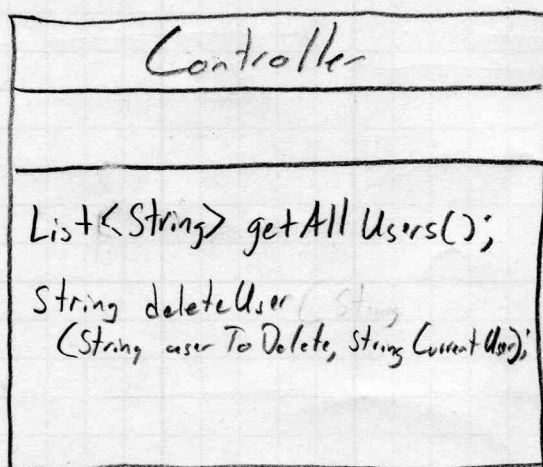 Controller
List<String> getAllUsers();
String deleteUser (String
(String userToDelete, String CurrentUser);